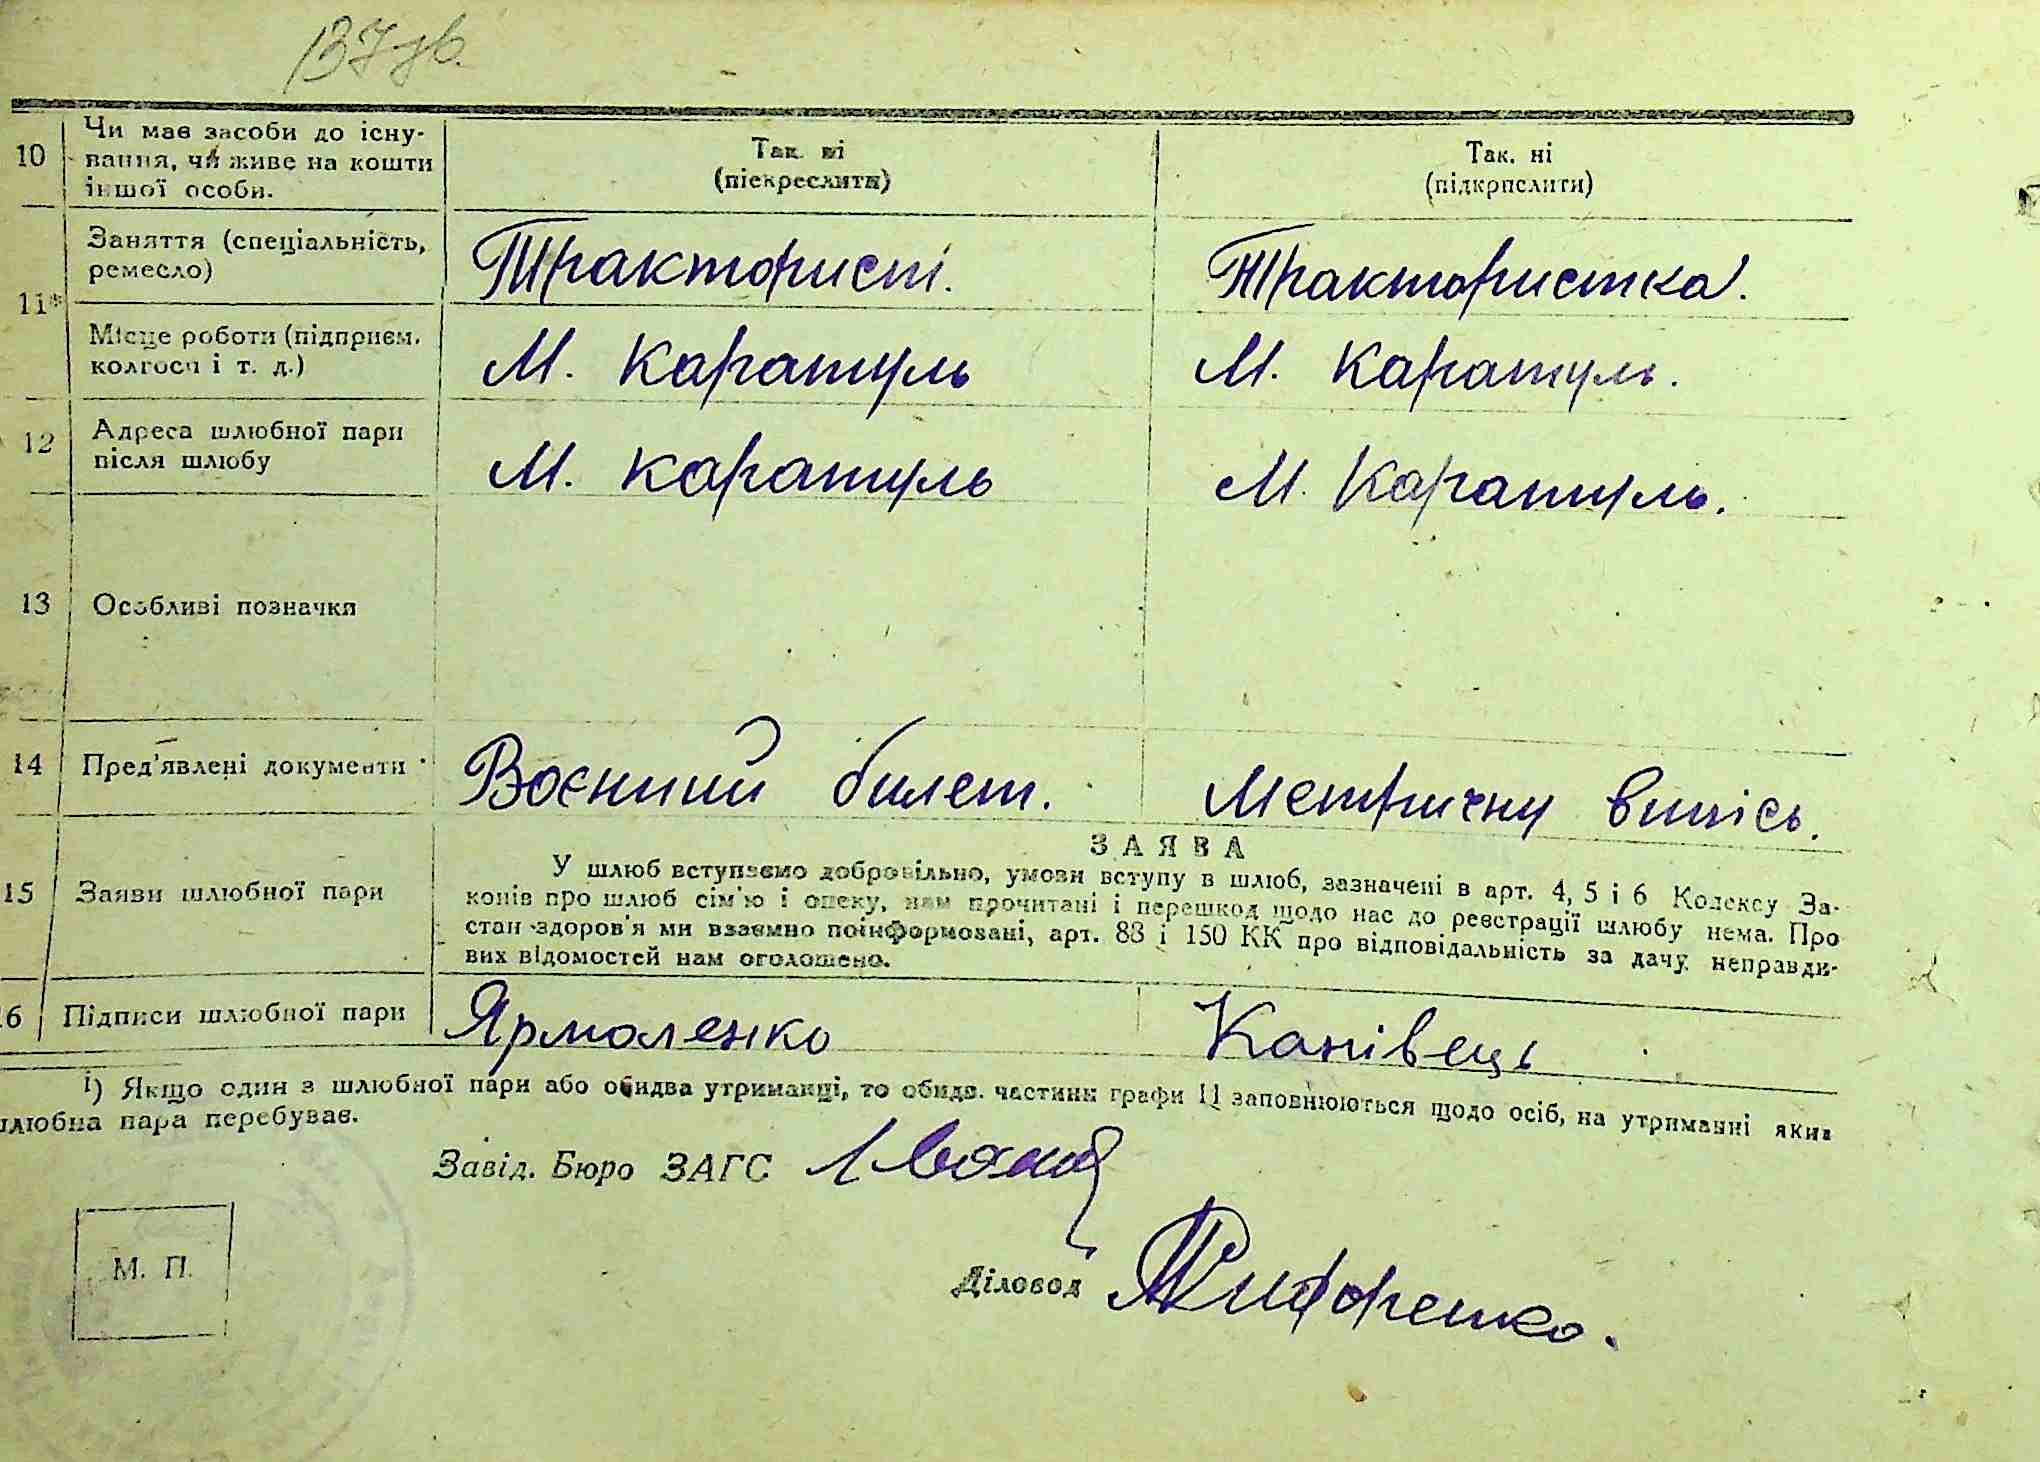 137 зв.
10
Чи має засоби до існу-
вання, чи живе на кошти
іншої особи.
Так. ні
(підкреслити)
Так. ні
(підкрпслити)
11*
Заняття (спеціальність,
ремесло)
Тракторист.
Трактористка.
Місце роботи (підприєм.
колгосп і т. д.)
М. Каратуль
М. Каратуль.
12
Адреса шлюбної пари
після шлюбу
М. Каратуль
М. Каратуль.
13
Особливі позначки
14
Пред'явлені документи
Воєнний билет.
Метричну випісь.
15
Заяви шлюбної пари
ЗАЯВА
У шлюб вступаємо добровільно, умови вступу в шлюб, зазначені в арт. 4, 5 і 6 Кодексу За-
конів про шлюб сім'ю і опеку, нам прочитані і перешкод щодо нас до реєстрації шлюбу нема. Про
стан здоров'я ми взаємно поінформовані, арт. 88 і 150 КК про відповідальність за дачу неправди-
вих відомостей нам оголошено.
16
Підписи шлюбної пари
Ярмоленко
Канівець
1) Якщо один з шлюбної пари або обидва утриманці, то обидв. частини графи 11 заповнюються щодо осіб, на утриманні яких
шлюбна пара перебуває.
Завід. Бюро ЗАГС
Діловод
М. П.